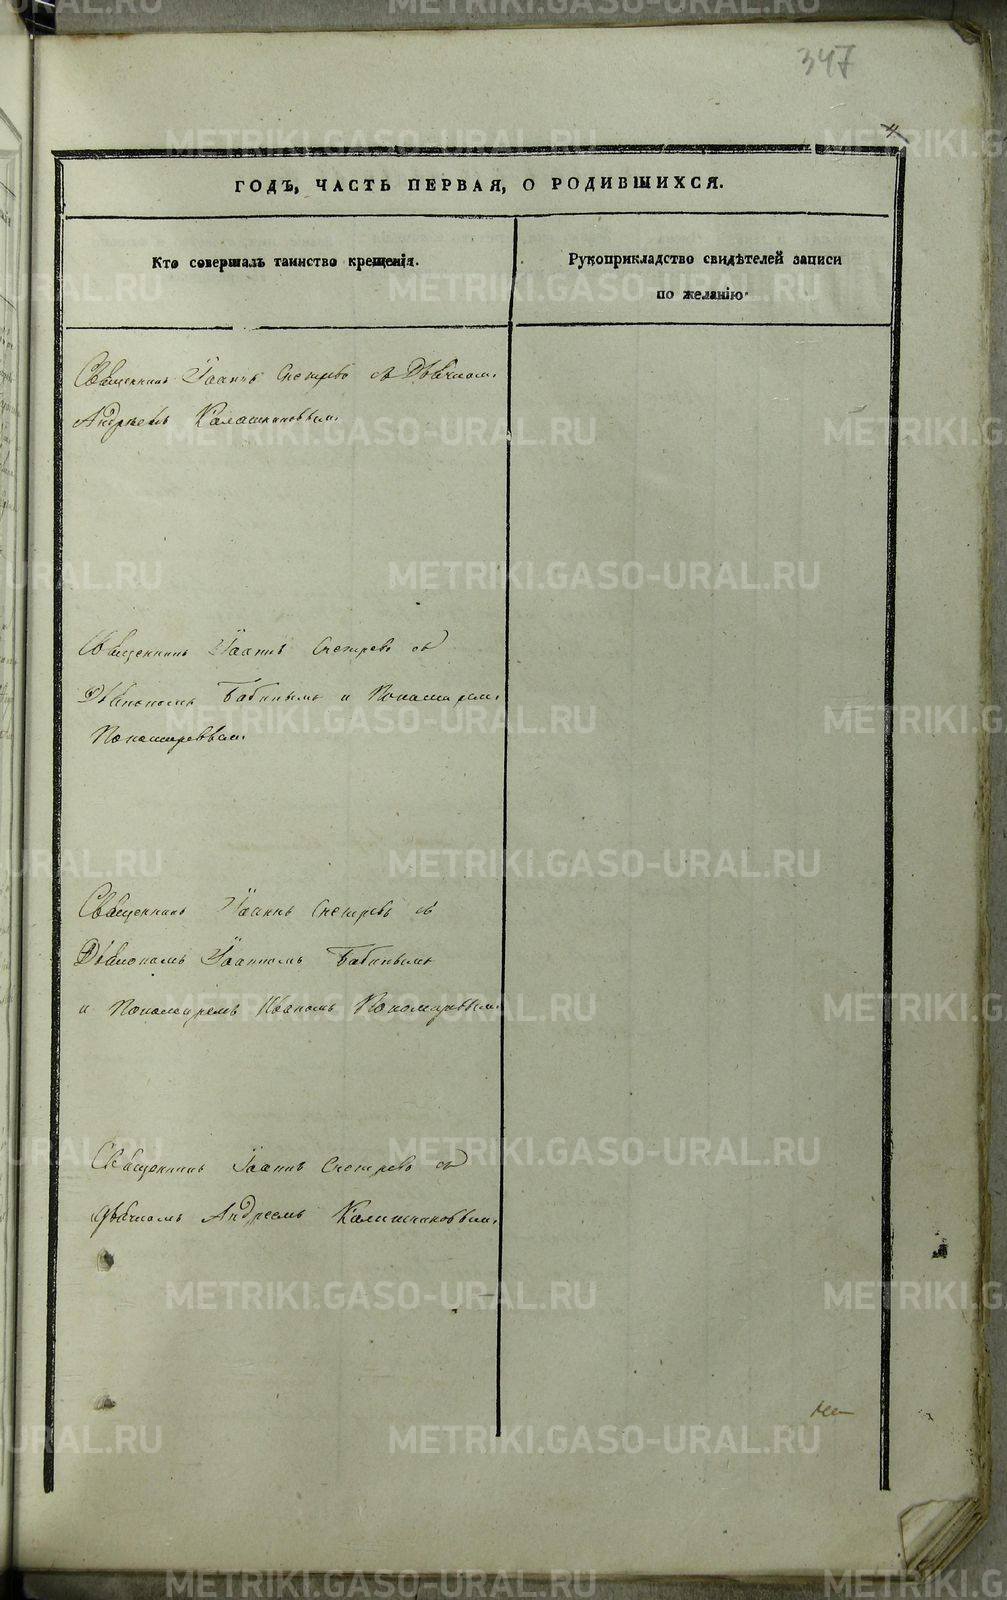 347
4
ГОДЪ, ЧАСТЬ ПЕРВАЯ, О РОДИВШИХСЯ.
Кто совершалъ таинство крещенія.
Рукоприкладство свидѣтелей записи
по желанію
Священникъ Іоаннъ съ Дьячком
Андреемъ Калашниковым.
Священникъ Іоаннъ съ
Діакономъ Бабинымъ и Пономарем
Пономаревым.
Священникъ Іоаннъ съ
Діакономъ Іоанномъ Бабинымъ
и Пономаремъ Иваномъ Пономаревым
Священникъ Іоаннъ съ
дьячкомъ Андреемъ Калашниковым.
METRIKI.GASO-URAL.RU